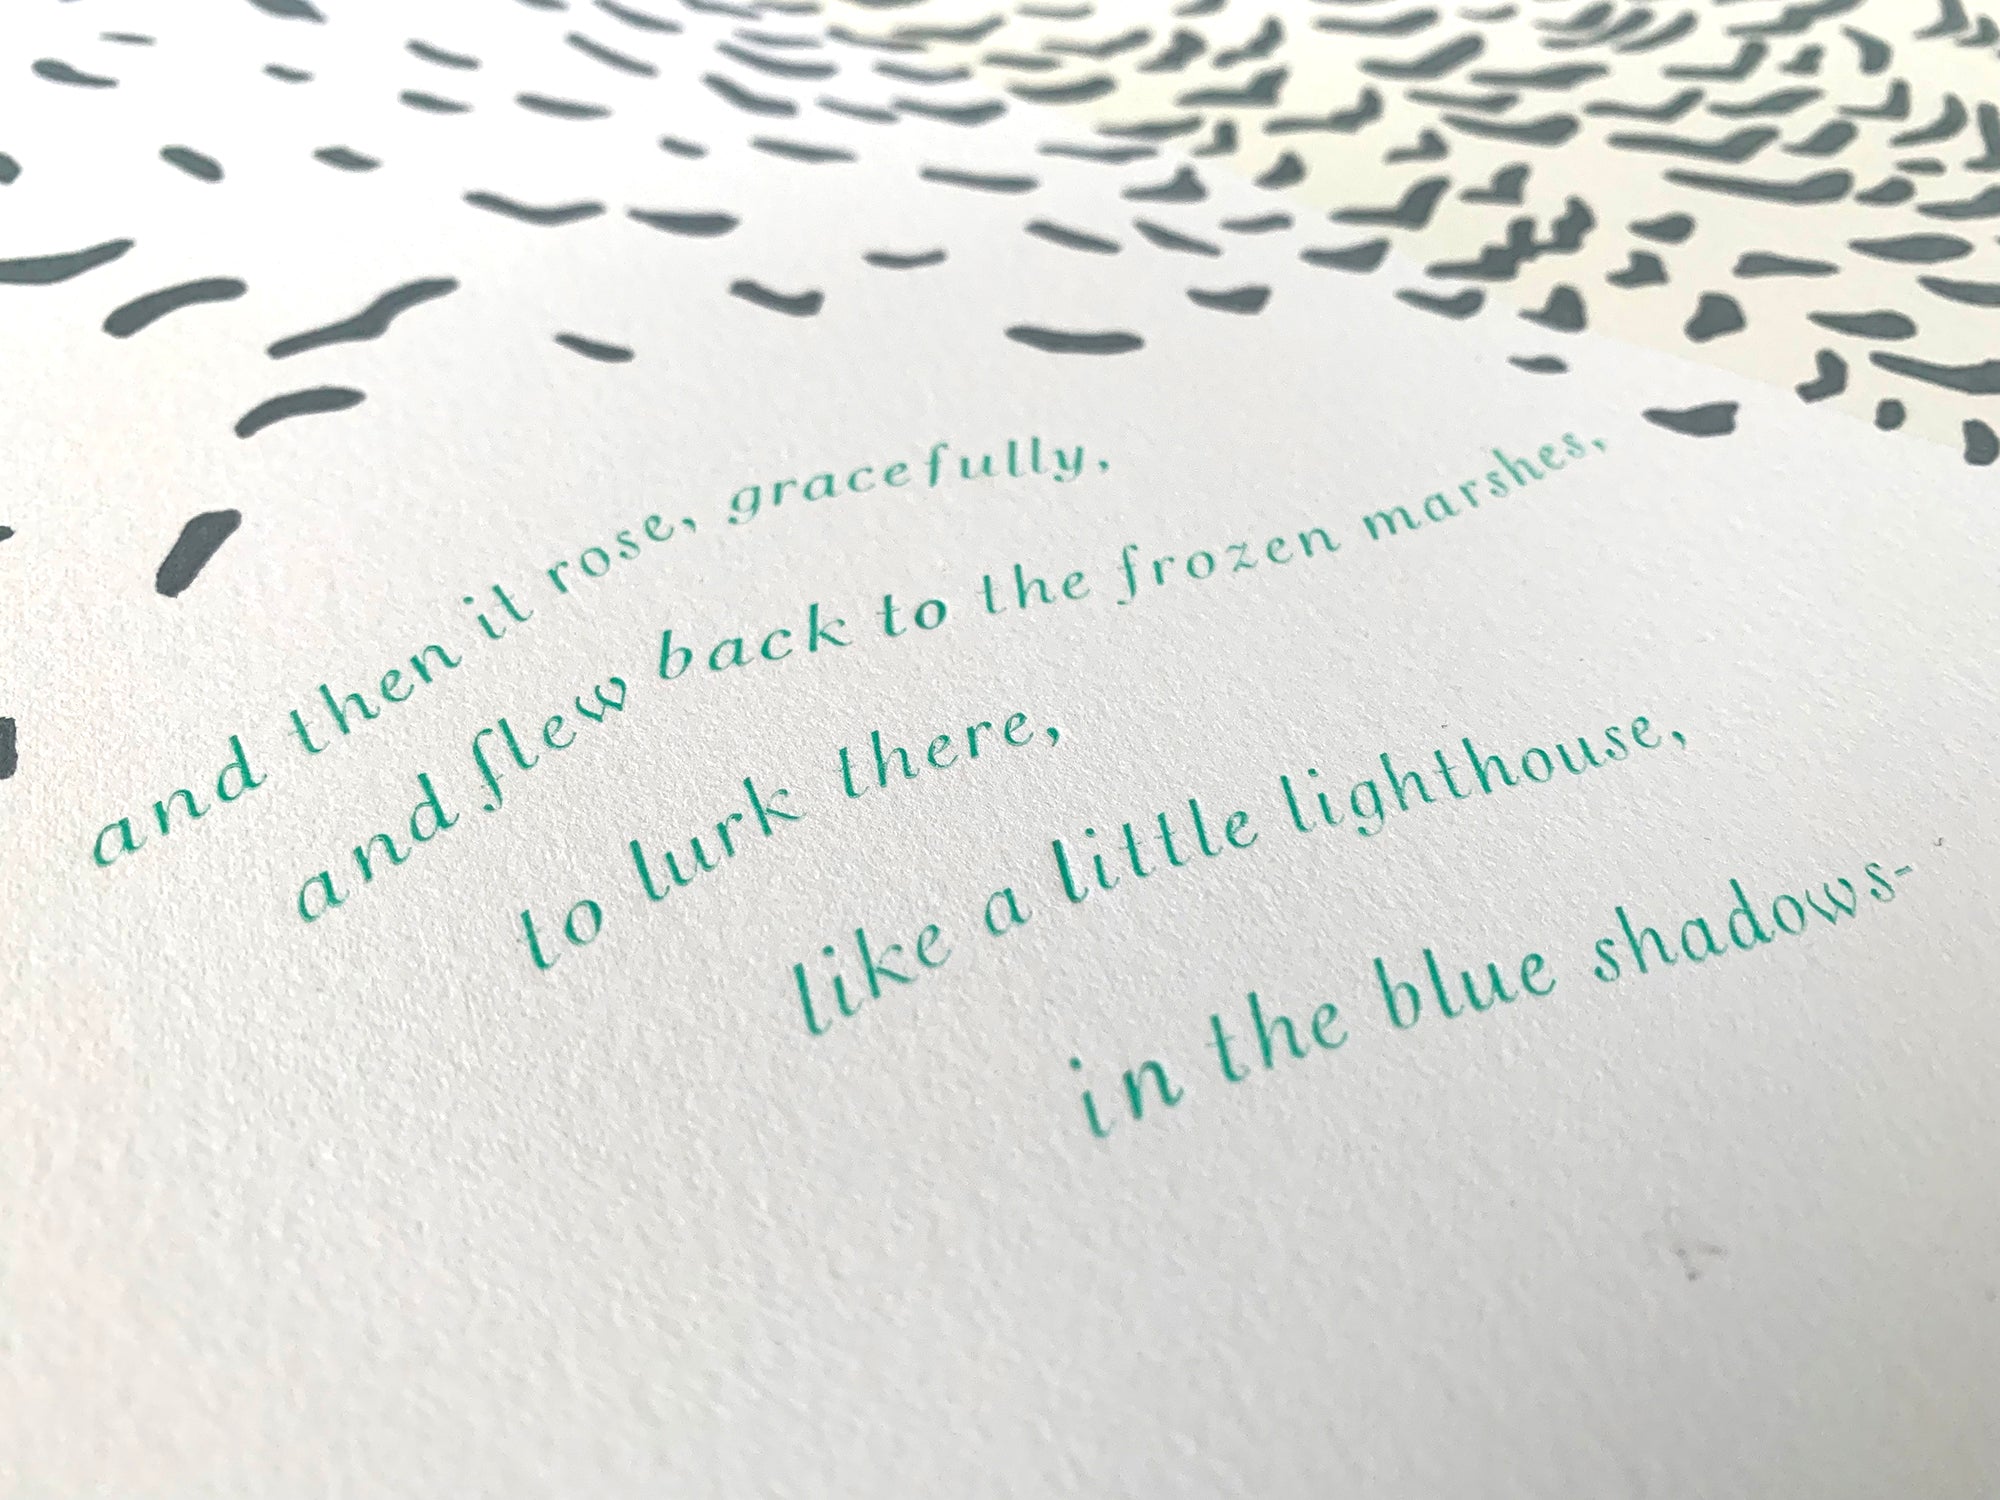 and then it rose, gracefully,
and flew back to the frozen marshes,
to lurk there,
like a little lighthouse,
in the blue shadows-